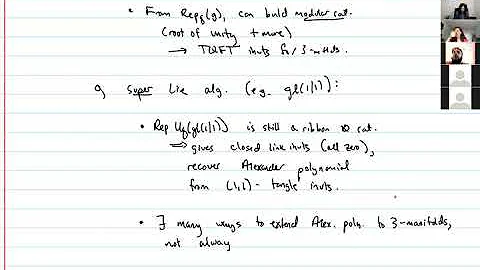 • From Rep_q(g), can build modular cat.
(root of unity + more)
→ TQFT invts for 3-mflds.
g super Lie alg. (e.g. gl(1|1)):
• Rep U_q(gl(1|1)) is still a ribbon ⊗ cat.
⇒ gives closed link invts (all zero),
recover Alexander polynomial
from (1,1)-tangle invts.
• ∃ many ways to extend Alex. poly. to 3-manifolds,
not alway